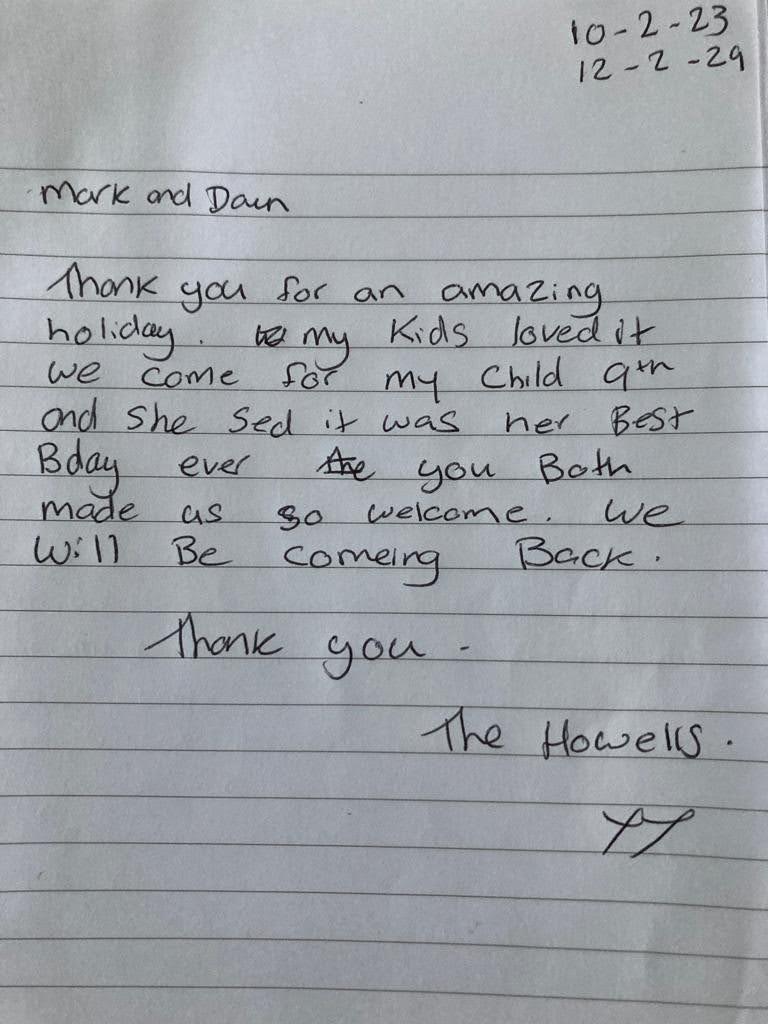 10-2-23
12-2-29
Mark and Daun
Thank you for an amazing
holiday. my kids loved it
we come for my child 9th
and she sed it was her Best
Bday ever you Both
made us so welcome. we
will Be comeing Back.
Thank you -
The Howells.